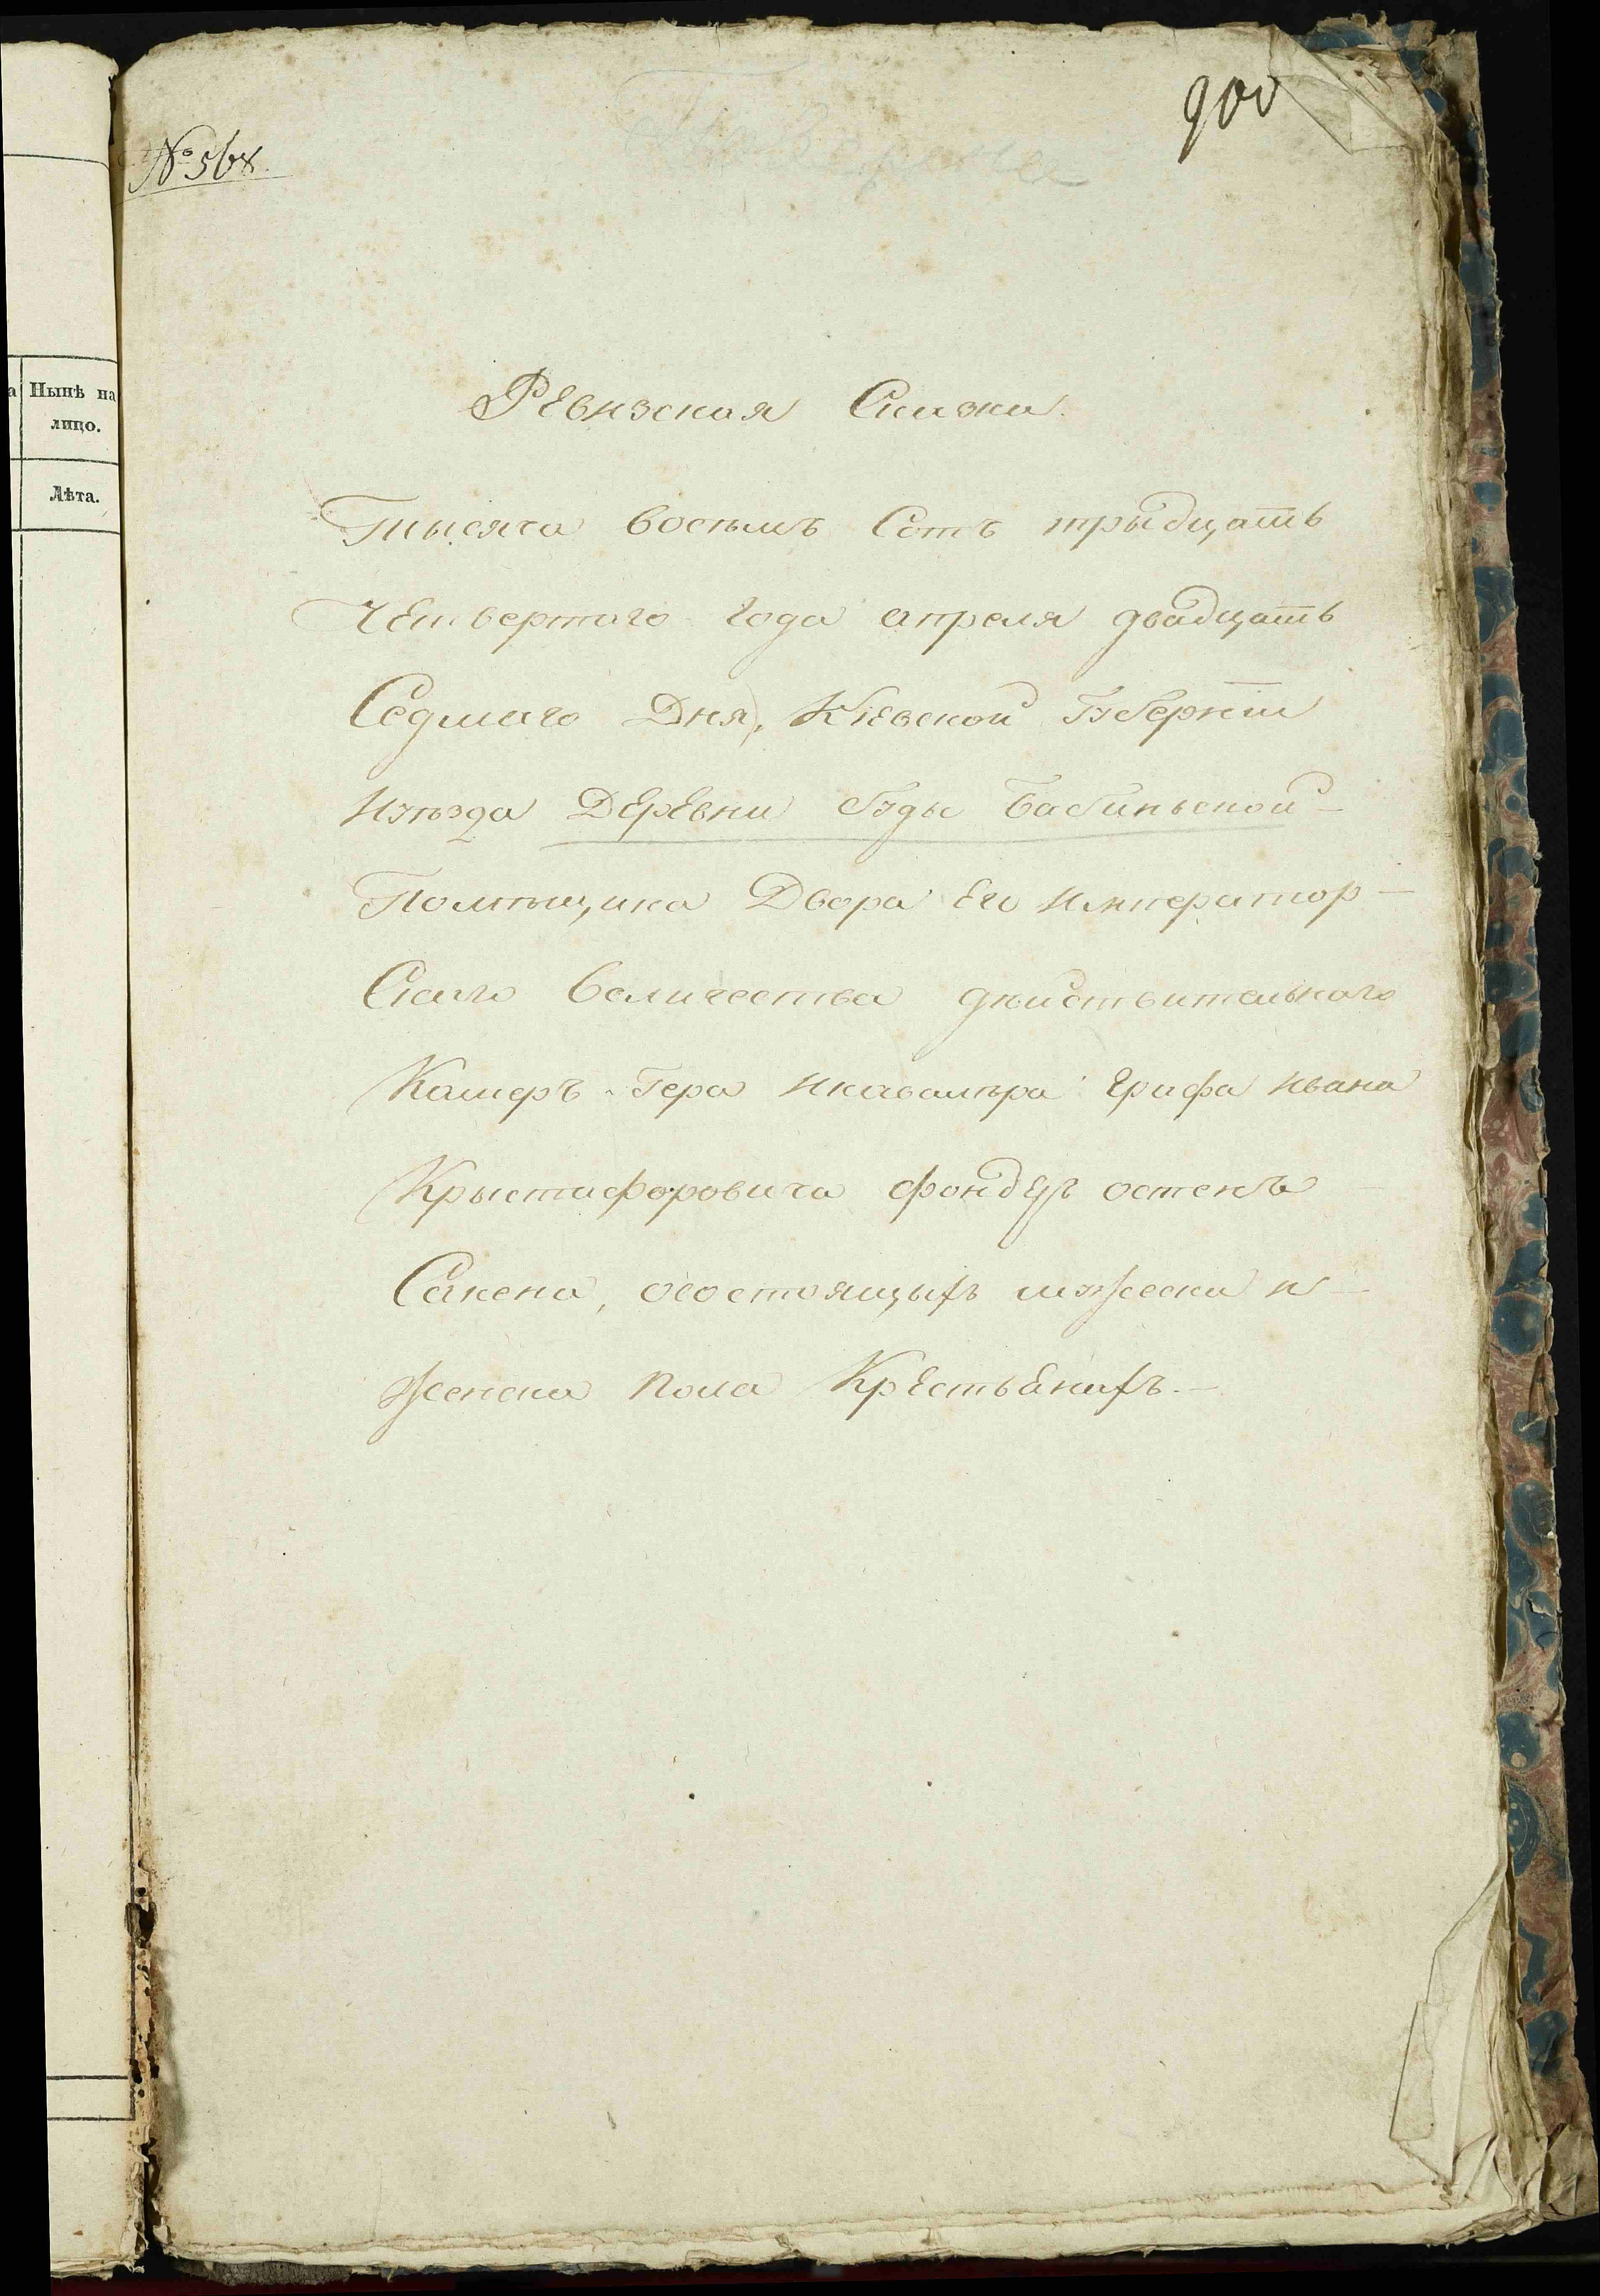 № 568.
900
а
Нынѣ на
лицо.
Лѣта.
Ревизская Сказка.
Тысяча восемъ Сотъ трыдцать
Четвертаго года апреля двадцать
Седмаго Дня, Кіевской Губерніи
Иуѣзда Деревни Буды Бабиньской
Помѣщика Двора Его Император-
Скаго величества дѣйствительнаго
Камеръ-Гера Икавалѣра Графа Ивана
Крыстафоровича фондеръ остенъ
Сакена, осостоящыхъ мужеска и
женска пола Крестьянахъ.